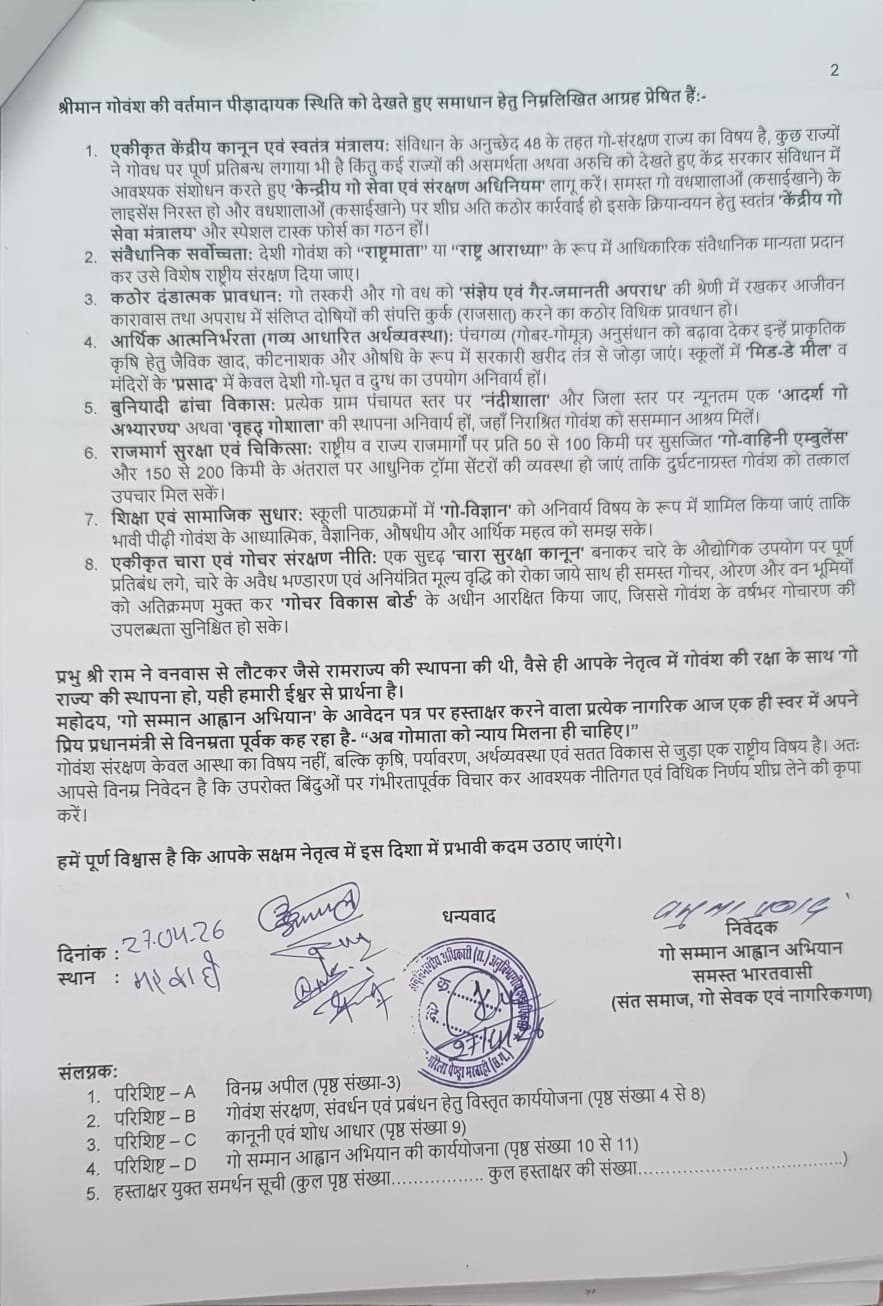 2
श्रीमान गोवंश की वर्तमान पीड़ादायक स्थिति को देखते हुए समाधान हेतु निम्नलिखित आग्रह प्रेषित हैं:-
1. एकीकृत केंद्रीय कानून एवं स्वतंत्र मंत्रालय: संविधान के अनुच्छेद 48 के तहत गो-संरक्षण राज्य का विषय है, कुछ राज्यों
ने गोवध पर पूर्ण प्रतिबन्ध लगाया भी है किंतु कई राज्यों की असमर्थता अथवा अरुचि को देखते हुए केंद्र सरकार संविधान में
आवश्यक संशोधन करते हुए 'केन्द्रीय गो सेवा एवं संरक्षण अधिनियम' लागू करें। समस्त गो वधशालाओं (कसाईखाने) के
लाइसेंस निरस्त हो और वधशालाओं (कसाईखाने) पर शीघ्र अति कठोर कार्रवाई हो इसके क्रियान्वयन हेतु स्वतंत्र 'केंद्रीय गो
सेवा मंत्रालय' और स्पेशल टास्क फोर्स का गठन हों।
2. संवैधानिक सर्वोच्चता: देशी गोवंश को “राष्ट्रमाता” या “राष्ट्र आराध्या” के रूप में आधिकारिक संवैधानिक मान्यता प्रदान
कर उसे विशेष राष्ट्रीय संरक्षण दिया जाए।
3. कठोर दंडात्मक प्रावधान: गो तस्करी और गो वध को 'संज्ञेय एवं गैर-जमानती अपराध' की श्रेणी में रखकर आजीवन
कारावास तथा अपराध में संलिप्त दोषियों की संपत्ति कुर्क (राजसात्) करने का कठोर विधिक प्रावधान हो।
4. आर्थिक आत्मनिर्भरता (गव्य आधारित अर्थव्यवस्था): पंचगव्य (गोबर-गोमूत्र) अनुसंधान को बढ़ावा देकर इन्हें प्राकृतिक
कृषि हेतु जैविक खाद, कीटनाशक और औषधि के रूप में सरकारी खरीद तंत्र से जोड़ा जाएं। स्कूलों में 'मिड-डे मील' व
मंदिरों के 'प्रसाद' में केवल देशी गो-घृत व दुग्ध का उपयोग अनिवार्य हों।
5. बुनियादी ढांचा विकास: प्रत्येक ग्राम पंचायत स्तर पर 'नंदीशाला' और जिला स्तर पर न्यूनतम एक 'आदर्श गो
अभ्यारण्य' अथवा 'वृहद् गोशाला' की स्थापना अनिवार्य हों, जहाँ निराश्रित गोवंश को ससम्मान आश्रय मिलें।
6. राजमार्ग सुरक्षा एवं चिकित्सा: राष्ट्रीय व राज्य राजमार्गों पर प्रति 50 से 100 किमी पर सुसज्जित 'गो-वाहिनी एम्बुलेंस'
और 150 से 200 किमी के अंतराल पर आधुनिक ट्रॉमा सेंटरों की व्यवस्था हो जाएं ताकि दुर्घटनाग्रस्त गोवंश को तत्काल
उपचार मिल सकें।
7. शिक्षा एवं सामाजिक सुधार: स्कूली पाठ्यक्रमों में 'गो-विज्ञान' को अनिवार्य विषय के रूप में शामिल किया जाएं ताकि
भावी पीढ़ी गोवंश के आध्यात्मिक, वैज्ञानिक, औषधीय और आर्थिक महत्व को समझ सके।
8. एकीकृत चारा एवं गोचर संरक्षण नीति: एक सुदृढ़ 'चारा सुरक्षा कानून' बनाकर चारे के औद्योगिक उपयोग पर पूर्ण
प्रतिबंध लगे, चारे के अवैध भण्डारण एवं अनियंत्रित मूल्य वृद्धि को रोका जाये साथ ही समस्त गोचर, ओरण और वन भूमियों
को अतिक्रमण मुक्त कर 'गोचर विकास बोर्ड' के अधीन आरक्षित किया जाए, जिससे गोवंश के वर्षभर गोचारण की
उपलब्धता सुनिश्चित हो सके।
प्रभु श्री राम ने वनवास से लौटकर जैसे रामराज्य की स्थापना की थी, वैसे ही आपके नेतृत्व में गोवंश की रक्षा के साथ 'गो
राज्य' की स्थापना हो, यही हमारी ईश्वर से प्रार्थना है।
महोदय, 'गो सम्मान आह्वान अभियान' के आवेदन पत्र पर हस्ताक्षर करने वाला प्रत्येक नागरिक आज एक ही स्वर में अपने
प्रिय प्रधानमंत्री से विनम्रता पूर्वक कह रहा है- “अब गोमाता को न्याय मिलना ही चाहिए।”
गोवंश संरक्षण केवल आस्था का विषय नहीं, बल्कि कृषि, पर्यावरण, अर्थव्यवस्था एवं सतत विकास से जुड़ा एक राष्ट्रीय विषय है। अतः
आपसे विनम्र निवेदन है कि उपरोक्त बिंदुओं पर गंभीरतापूर्वक विचार कर आवश्यक नीतिगत एवं विधिक निर्णय शीघ्र लेने की कृपा
करें।
हमें पूर्ण विश्वास है कि आपके सक्षम नेतृत्व में इस दिशा में प्रभावी कदम उठाए जाएंगे।
धन्यवाद
दिनांक : 27.04.26
स्थान : मरवाही
निवेदक
गो सम्मान आह्वान अभियान
समस्त भारतवासी
(संत समाज, गो सेवक एवं नागरिकगण)
अनुविभागीय अधिकारी (रा.)
27/4/26
गौरेला पेण्ड्रा मरवाही (छ.ग.)
संलग्नक:
1. परिशिष्ट – A विनम्र अपील (पृष्ठ संख्या-3)
2. परिशिष्ट – B गोवंश संरक्षण, संवर्धन एवं प्रबंधन हेतु विस्तृत कार्ययोजना (पृष्ठ संख्या 4 से 8)
3. परिशिष्ट – C कानूनी एवं शोध आधार (पृष्ठ संख्या 9)
4. परिशिष्ट – D गो सम्मान आह्वान अभियान की कार्ययोजना (पृष्ठ संख्या 10 से 11)
5. हस्ताक्षर युक्त समर्थन सूची (कुल पृष्ठ संख्या................. कुल हस्ताक्षर की संख्या......................................)